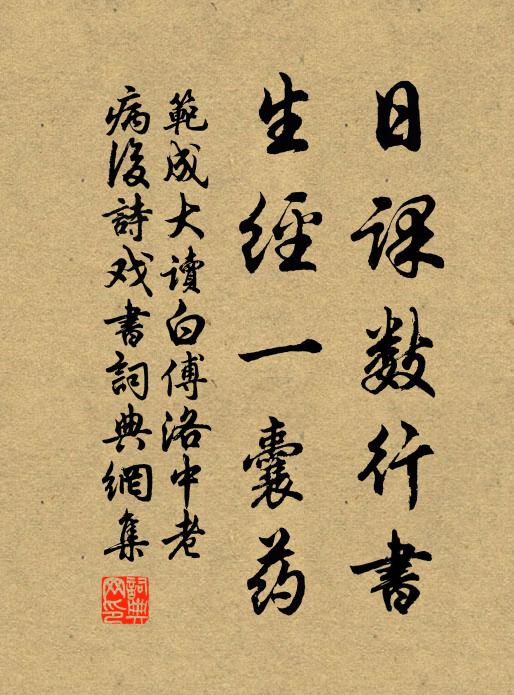 日课数行書
生經一囊药
範成大讀白傅洛中老
病後詩戏書詞典網集
詞典网印